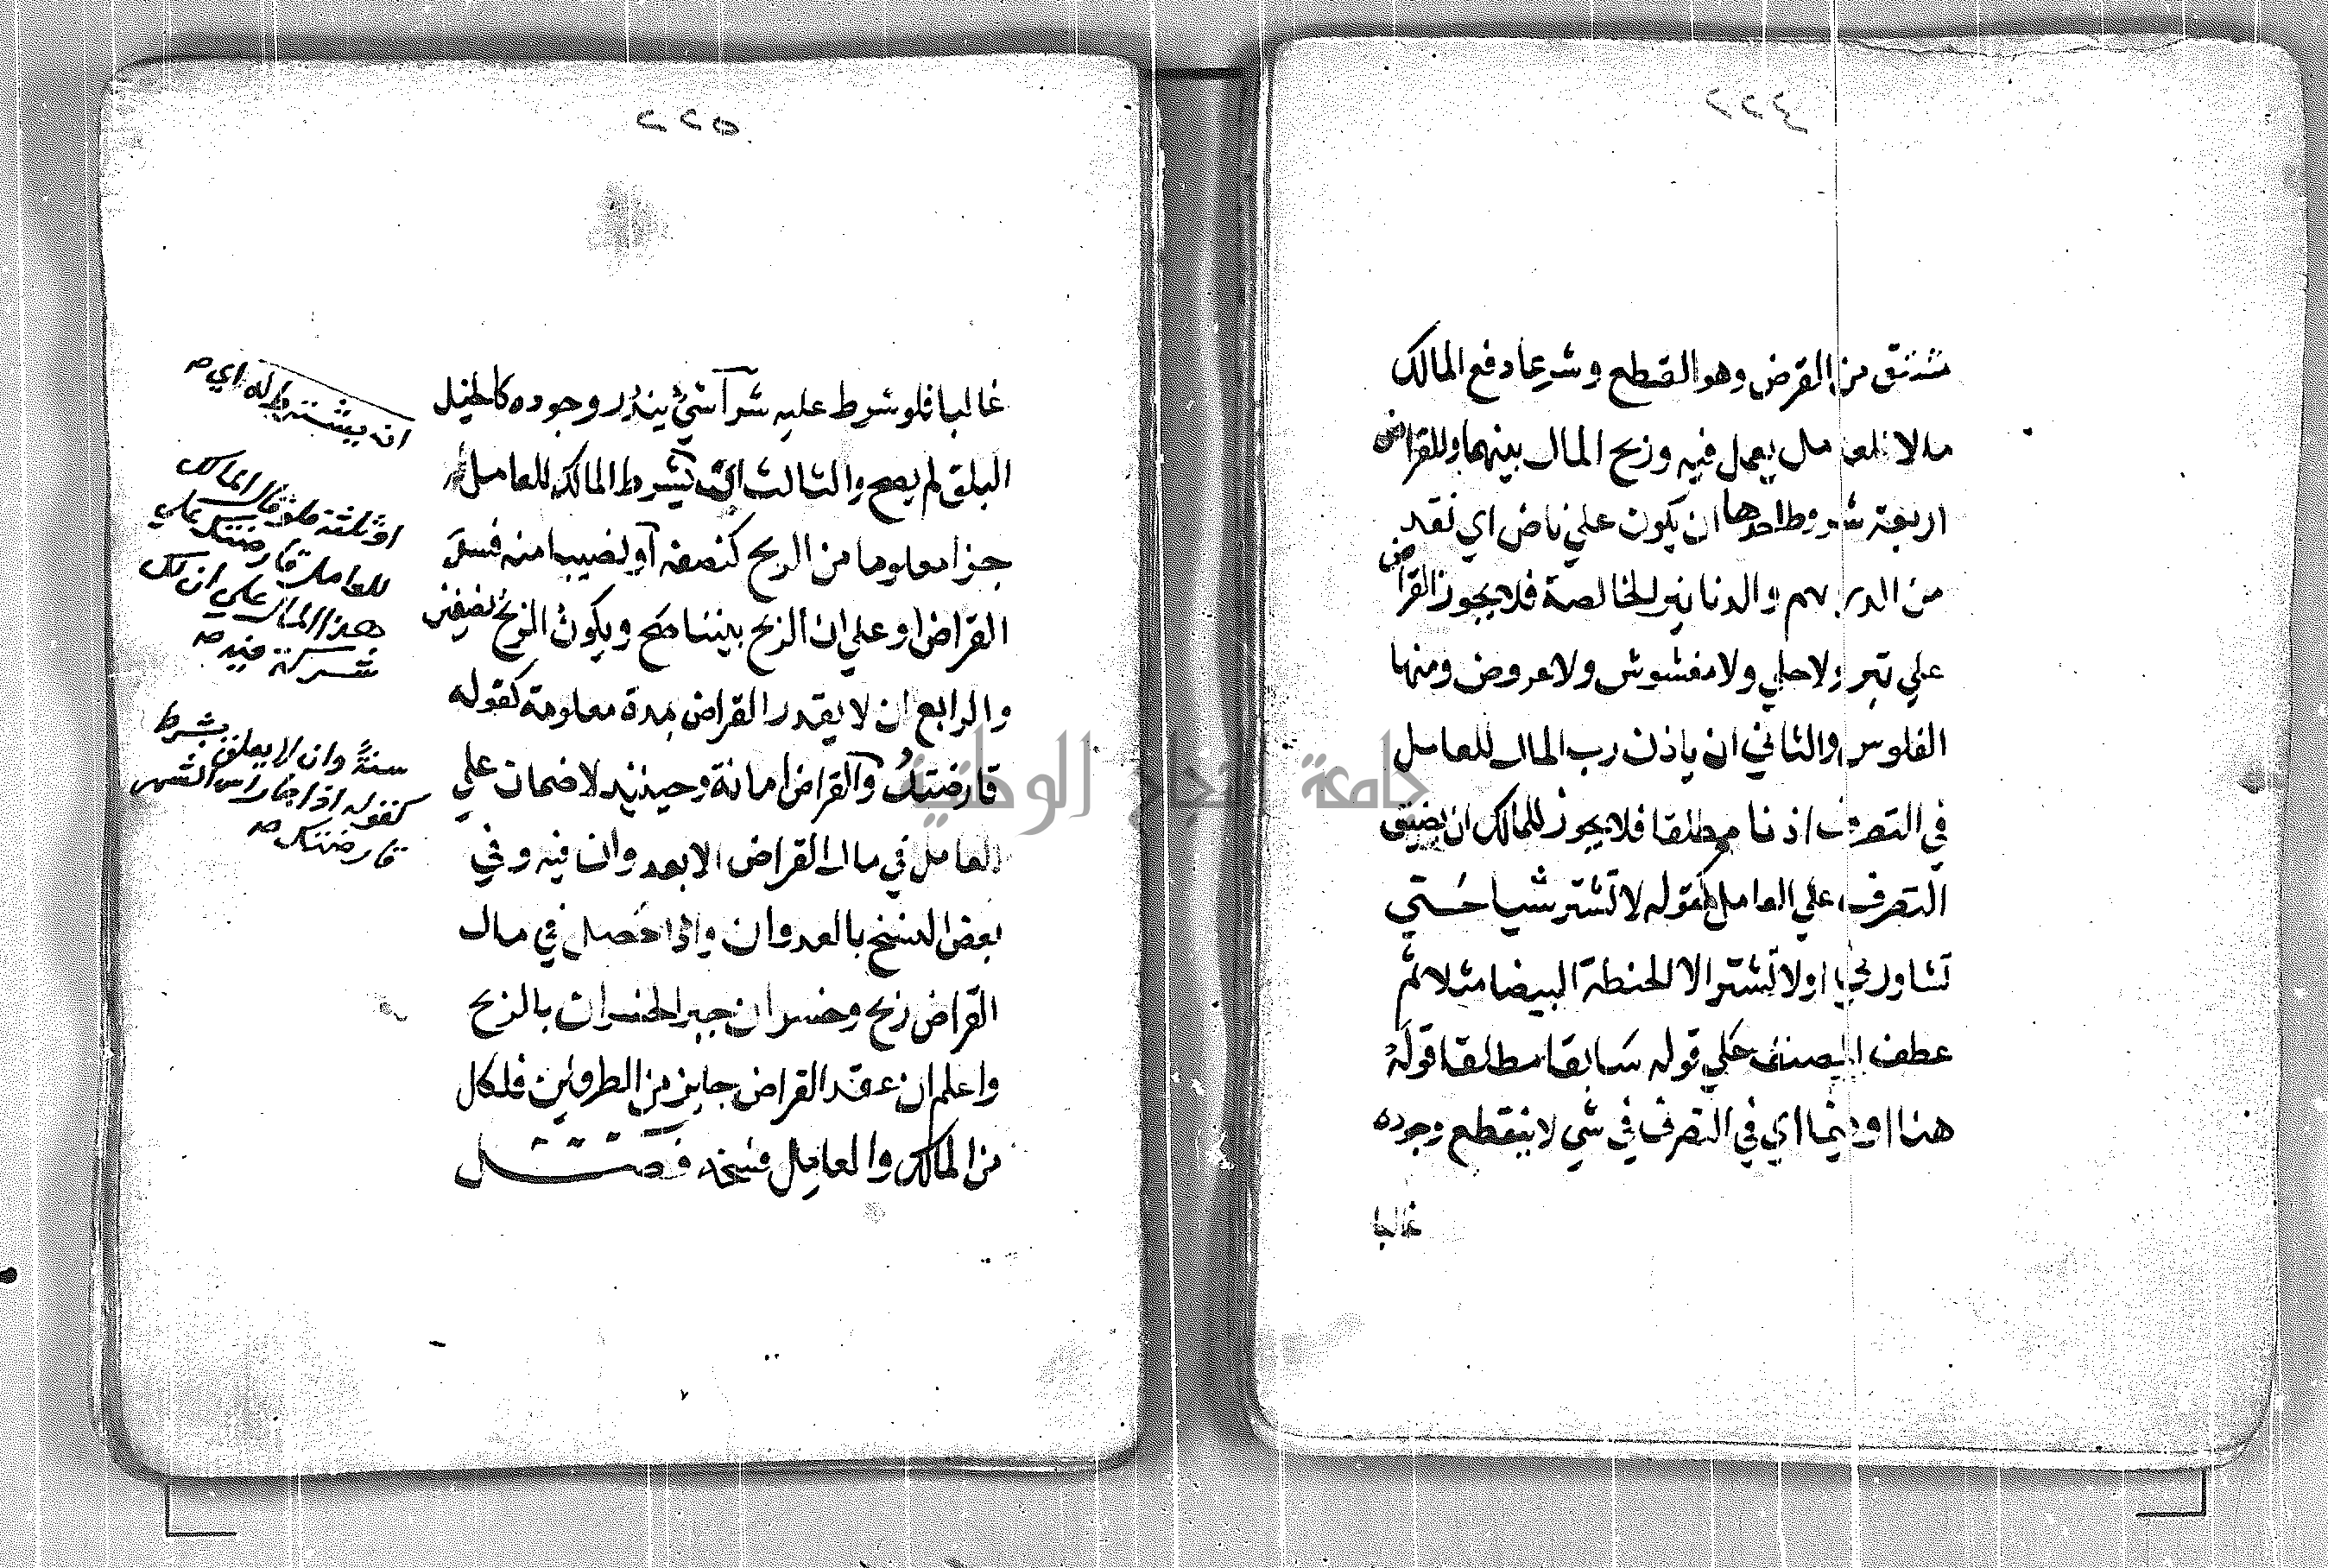 ٢٢٤
مشتق من القرض وهو القطع وشرعا دفع المالك
مالا للعامل يعمل فيه وربح المال بينهما وللقراض
اربعة شروط احدها ان يكون علي ناض اي نقد
من الدراهم والدنانير الخالصة فلا يجوز القراض
علي تبر ولا حلي ولا مغشوش ولا عروض ومنها
الفلوس والثاني ان ياذن رب المال للعامل
في التصرف اذنا مطلقا فلا يجوز للمالك ان يضيق
التصرف علي العامل كقوله لا تشتر شيا حتي
تشاورني او لا تشتر الا الحنطة البيضا مثلا ثم
عطف المصنف علي قوله سابقا مطلقا قوله
هنا او فيما اي في التصرف في شي لا ينقطع وجوده
غالبا
٢٢٥
غالبا فلو شرط عليه شرآ شيء يندر وجوده كالخيل
البلق لم يصح والثالث ان يشرط المالك للعامل
جزا معلوما من الربح كنصفه او نصيبا منه فسد
القراض او علي ان الربح بيننا صح ويكون الربح نصفين
والرابع ان لا يقدر القراض بمدة معلومة كقوله
قارضتك والقراض امانة وحينئذ لا ضمان علي
العامل في مال القراض الا بعدوان فيه وفي
بعض النسخ بالعدوان واذا حصل في مال
القراض ربح وخسران جبر الخسران بالربح
واعلم ان عقد القراض جايز من الطرفين فلكل
من المالك والعامل فسخه فصل
ان يشترط له اي صه
او ثلثه فلو قال المالك
للعامل قارضتك علي
هذا المال علي ان لك
شركة فيه صه
سنة وان لا يعلق بشرط
كقوله اذا جا راس الشهر
قارضتك صه
جامعة النجاح الوطنية